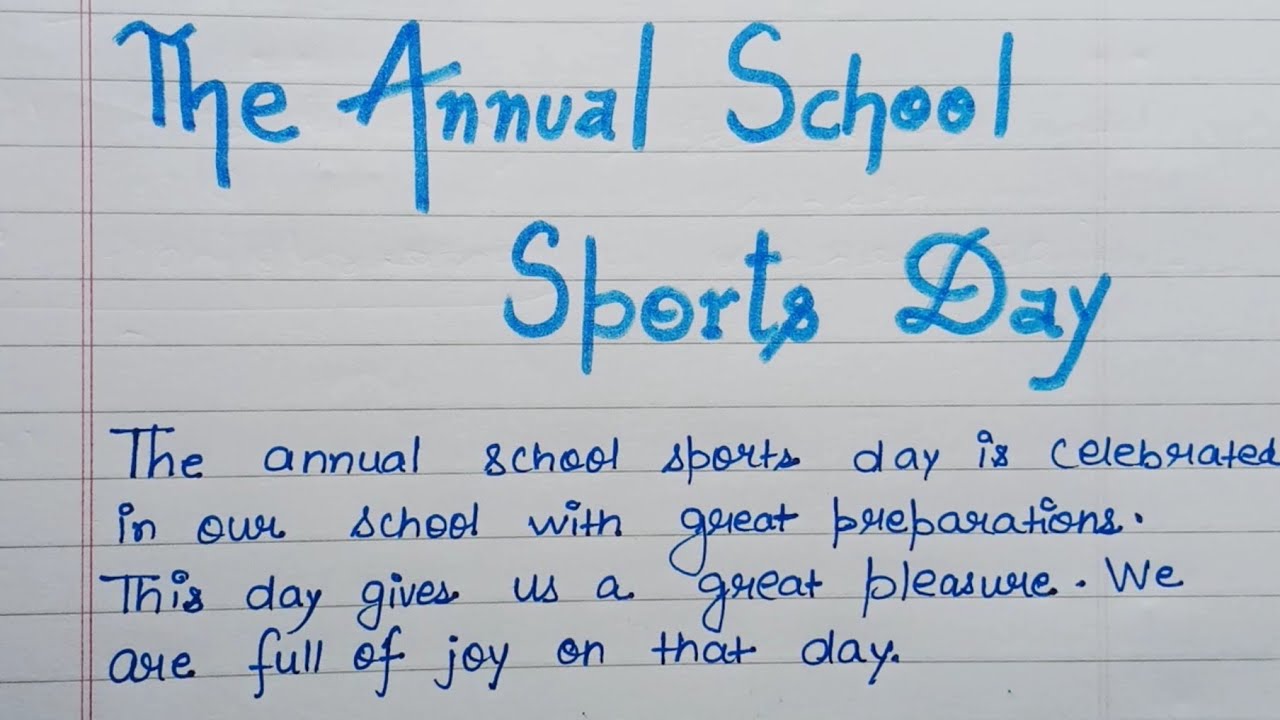 The Annual School
Sports Day
The annual school sports day is celebrated
in our school with great preparations.
This day gives us a great pleasure. We
are full of joy on that day.